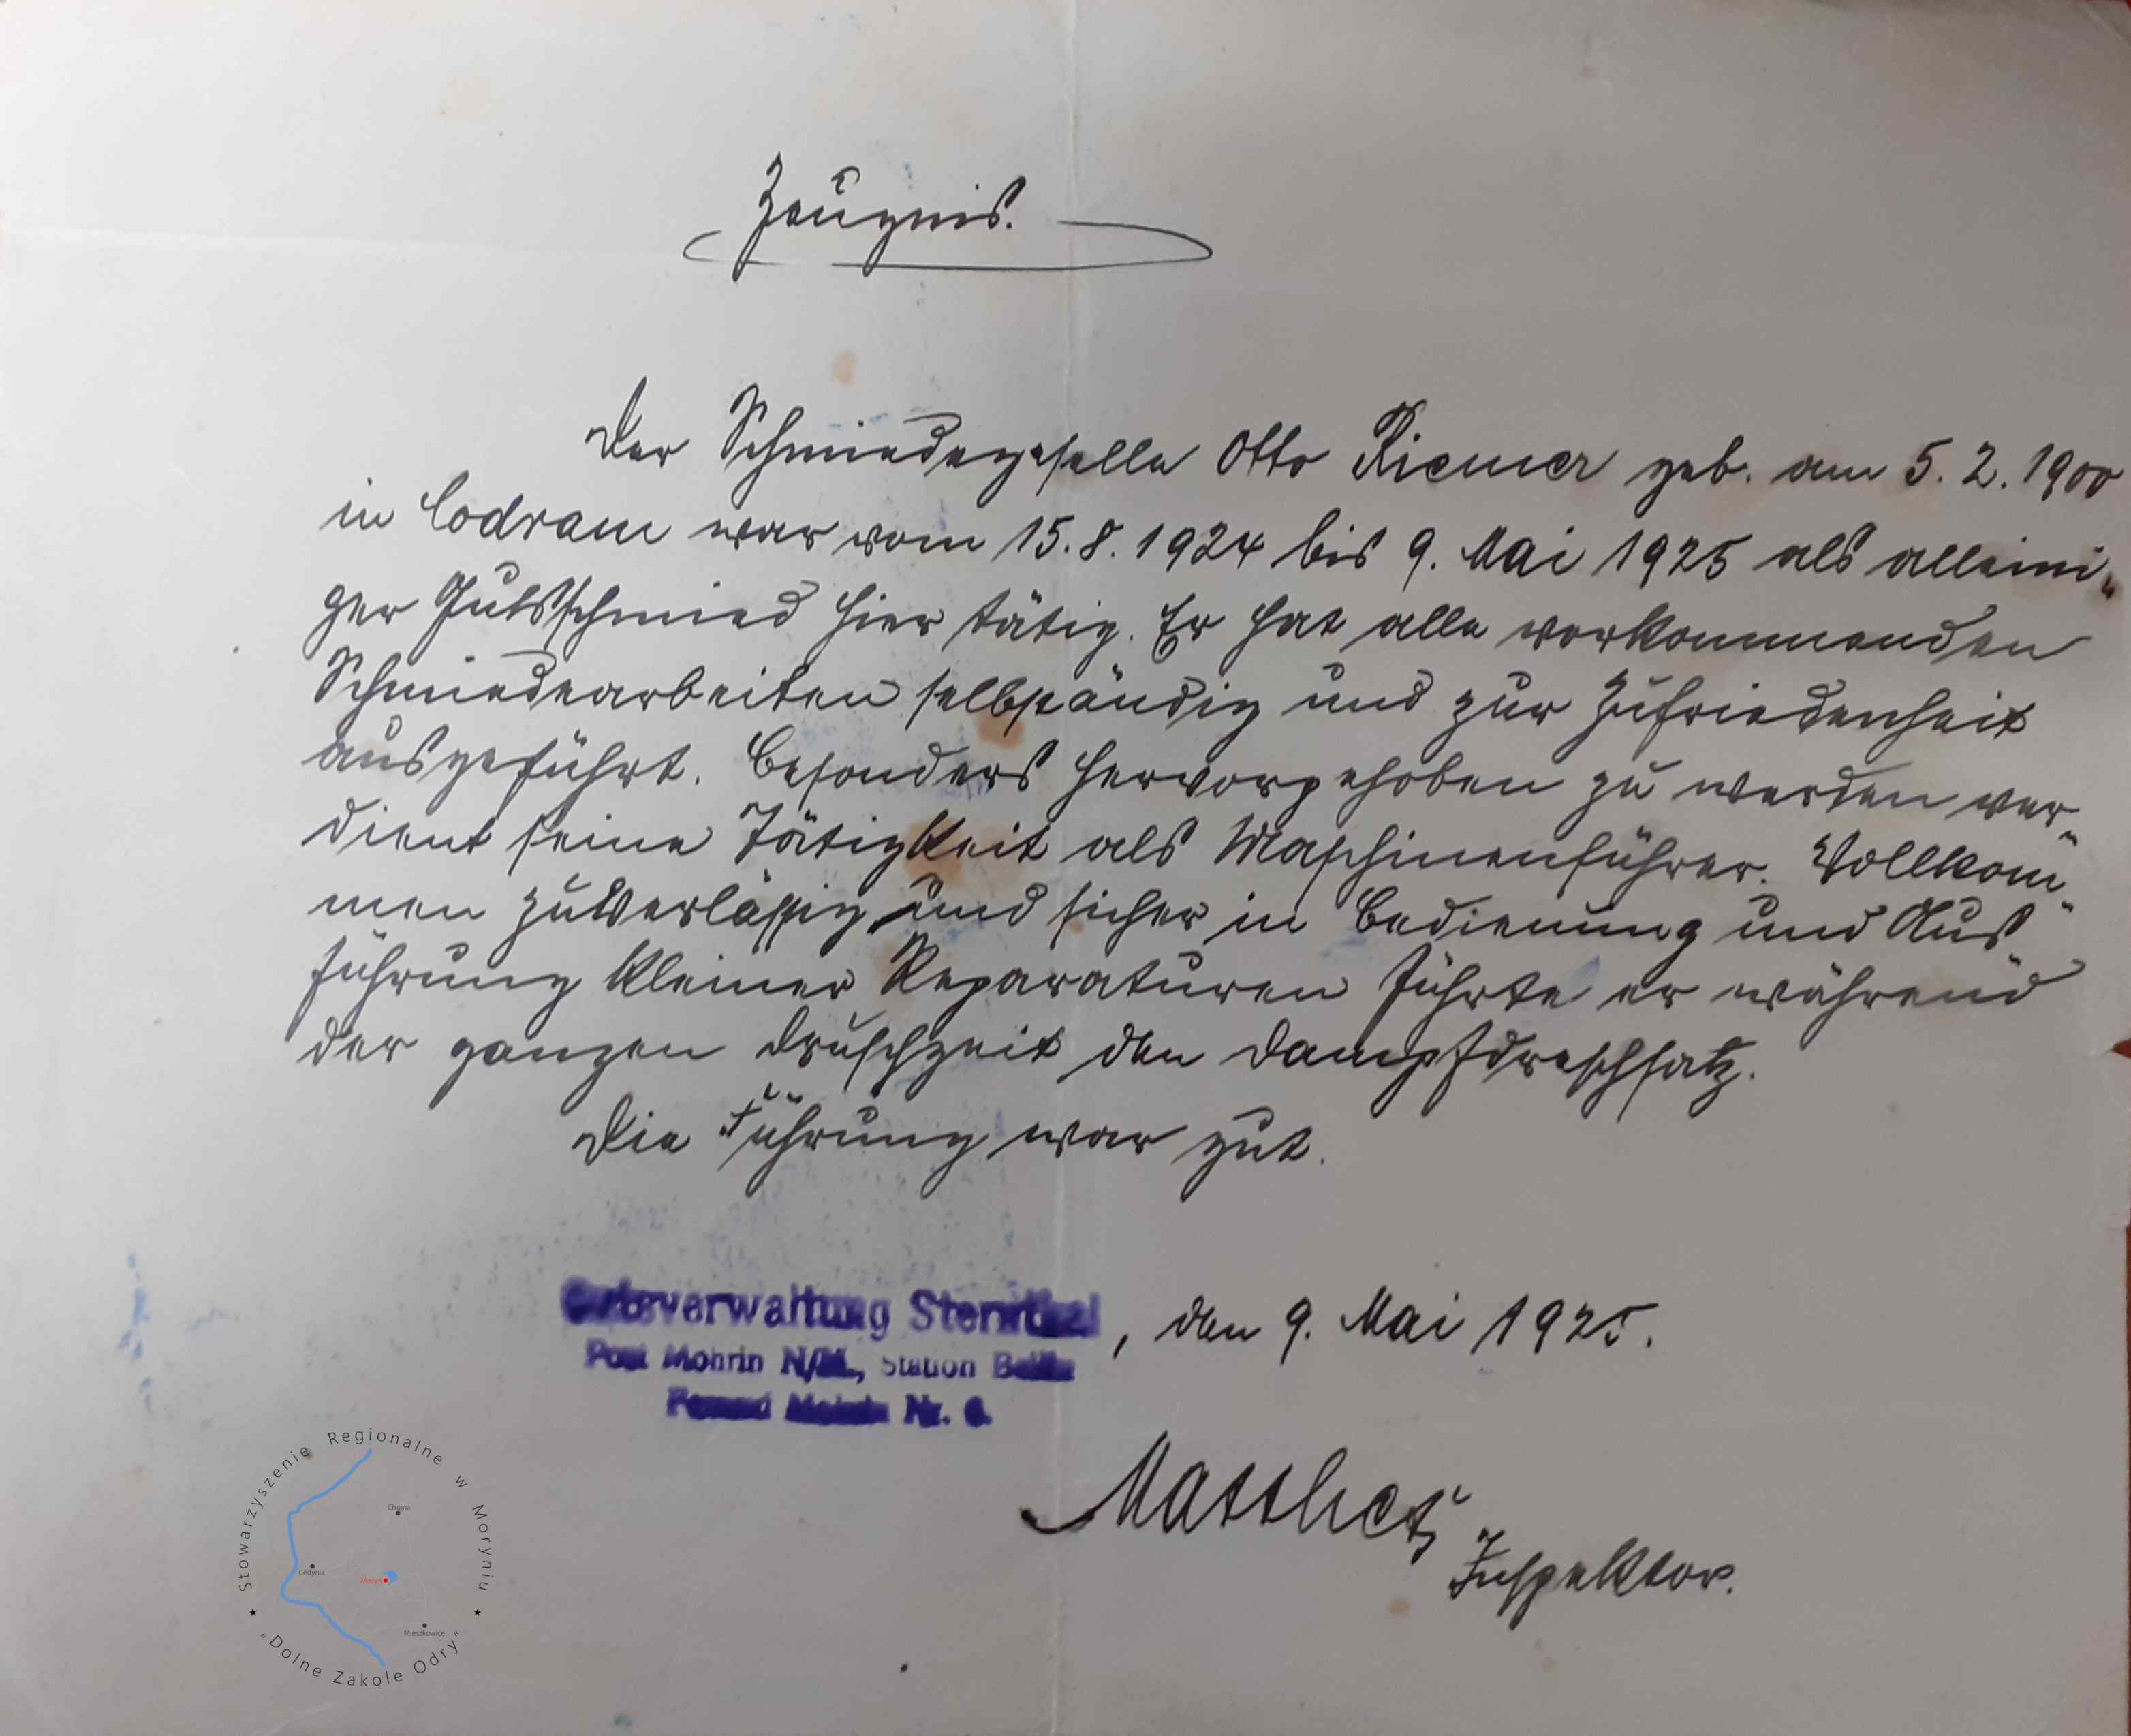 Zeugnis.
Der Schmiedegeselle Otto Riemer geb. am 5. 2. 1900
in Codram war vom 15. 8. 1924 bis 9. Mai 1925 als alleini-
ger Gutsschmied hier tätig. Er hat alle vorkommenden
Schmiedearbeiten selbständig und zur Zufriedenheit
ausgeführt. Besonders hervorgehoben zu werden ver-
dient seine Tätigkeit als Maschinenführer. Vollkom-
men zuverlässig und sicher in Bedienung und Aus-
führung kleiner Reparaturen führte er während
der ganzen Druschzeit den Dampfdreschsatz.
Die Führung war gut.
Gutsverwaltung Sternthal, den 9. Mai 1925.
Post Mohrin N/M., Station
Nr. 6
Inspektor.
Stowarzyszenie Regionalne w Moryniu
Chojna
Cedynia
Moryń
Mieszkowice
"Dolne Zakole Odry"